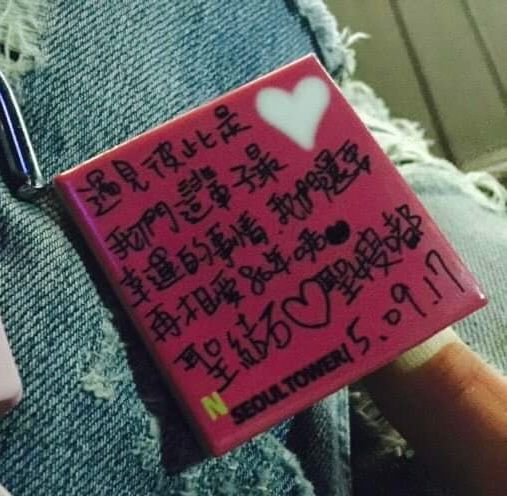 遇見彼此是
我們這輩子最
幸運的事情.我們還要
再相愛80年唷
聖結石♡聖嫂嘟
15.09.17
N SEOULTOWER